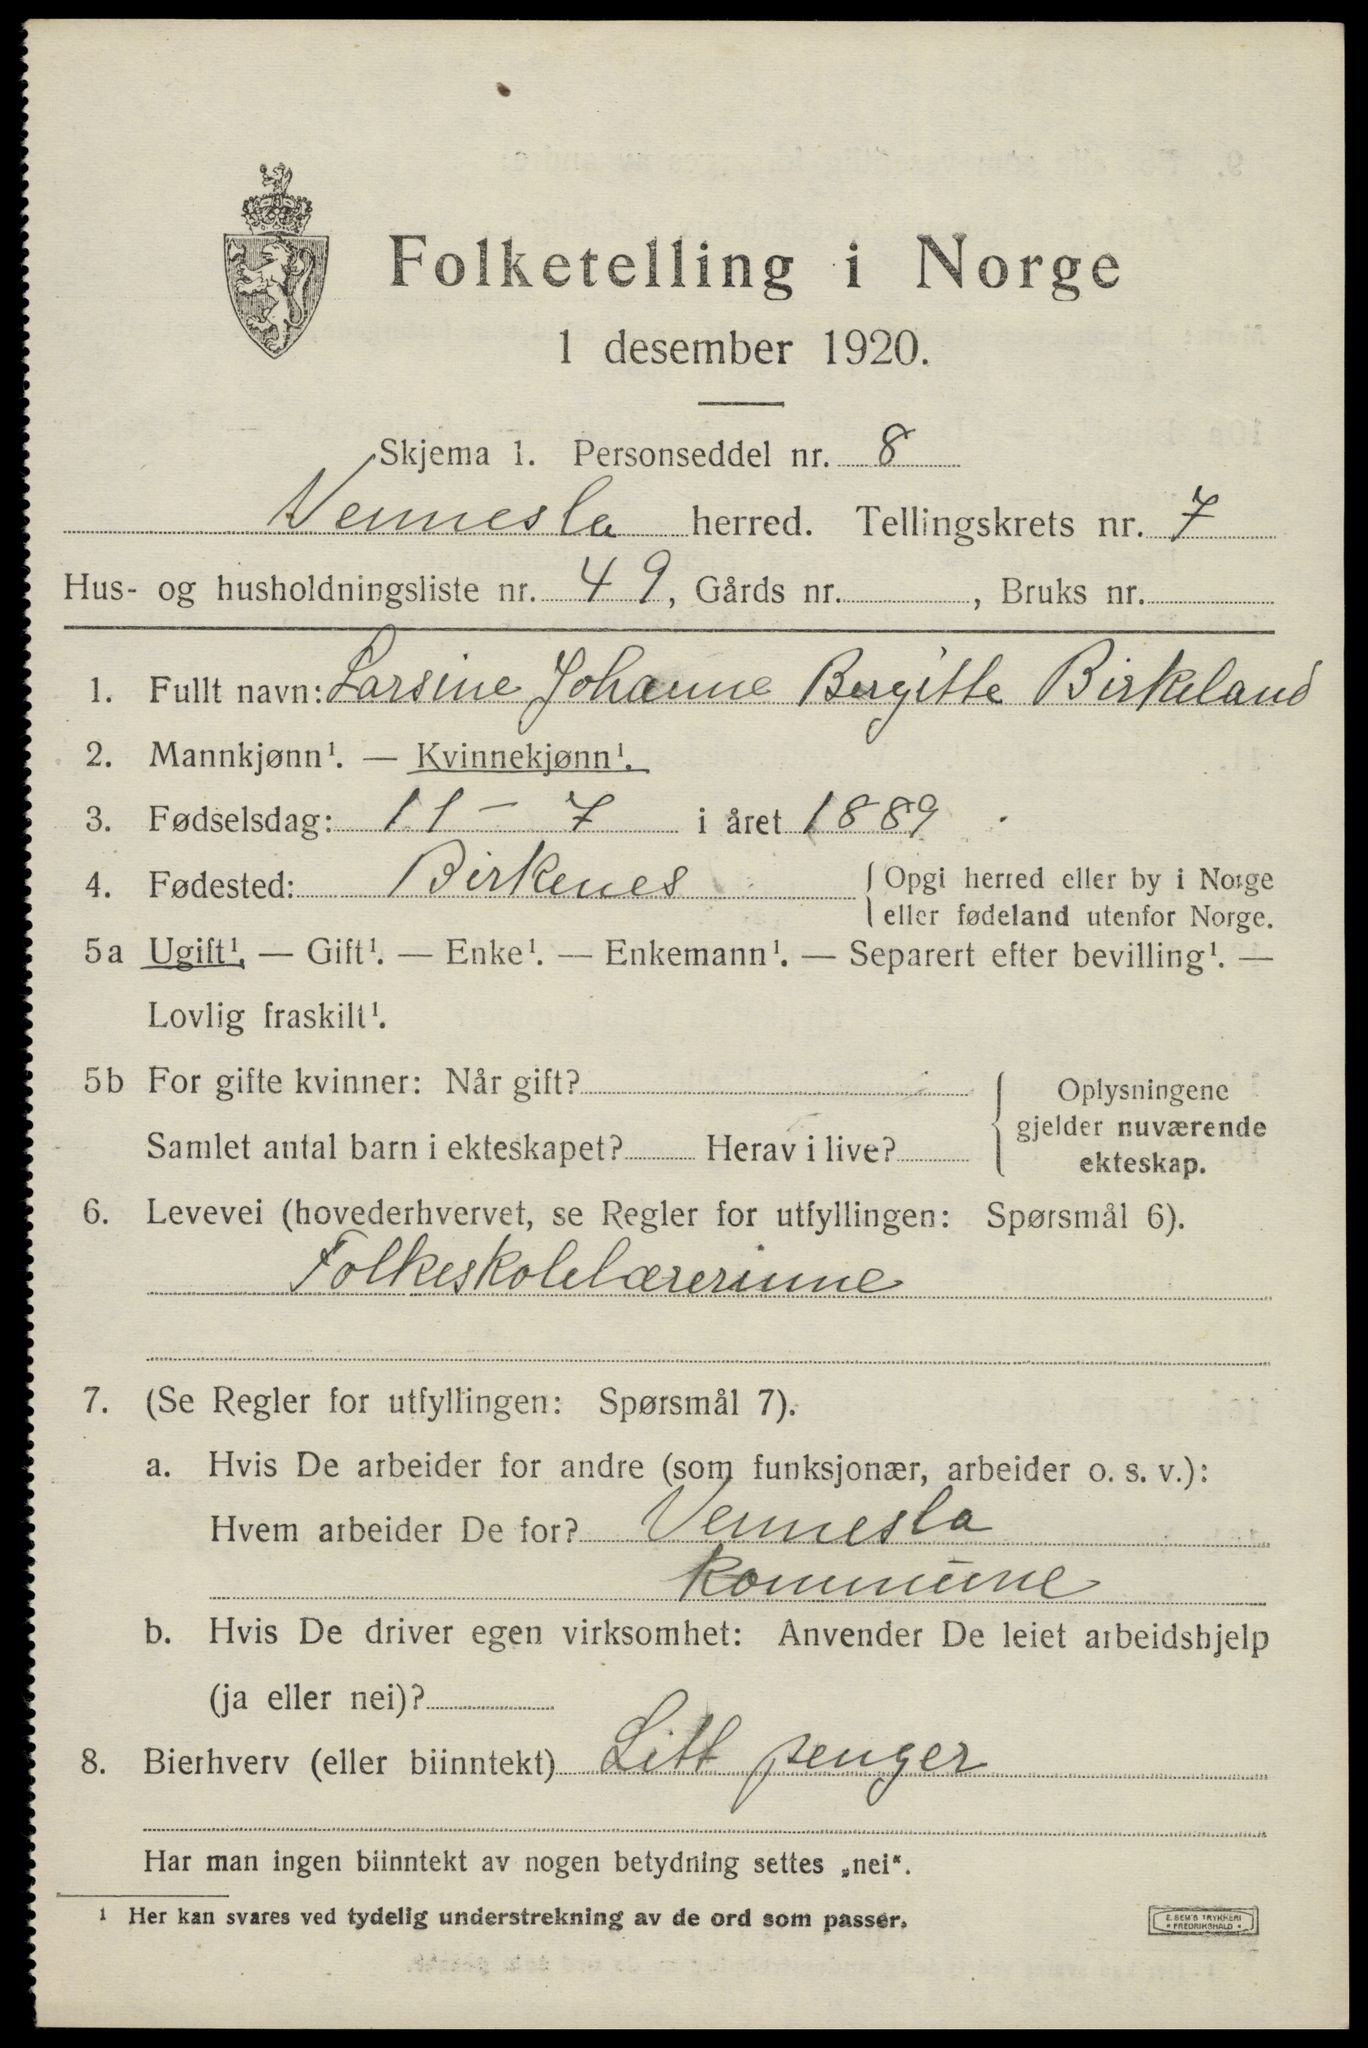 Folketelling i Norge
1 desember 1920.
Skjema 1. Personseddel nr. 8
Vennesla herred. Tellingskrets nr. 7
Hus- og husholdningsliste nr. 49, Gårds nr. , Bruks nr.
1. Fullt navn: Larsine Johanne Bergitte Birkeland
2. Mannkjønn¹. — Kvinnekjønn¹.
3. Fødselsdag: 11 - 7 i året 1889
4. Fødested: Birkenes {Opgi herred eller by i Norge
eller fødeland utenfor Norge.
5a Ugift¹. — Gift¹. — Enke¹. — Enkemann¹. — Separert efter bevilling¹. —
Lovlig fraskilt¹.
5b For gifte kvinner: Når gift?
Samlet antal barn i ekteskapet? Herav i live?
Oplysningene
gjelder nuværende
ekteskap.
6. Levevei (hovederhvervet, se Regler for utfyllingen: Spørsmål 6).
Folkeskolelærerinne
7. (Se Regler for utfyllingen: Spørsmål 7).
a. Hvis De arbeider for andre (som funksjonær, arbeider o. s. v.):
Hvem arbeider De for? Vennesla
kommune
b. Hvis De driver egen virksomhet: Anvender De leiet arbeidshjelp
(ja eller nei)?
8. Bierhverv (eller biinntekt) Litt penger
Har man ingen biinntekt av nogen betydning settes „nei“.
¹ Her kan svares ved tydelig understrekning av de ord som passer.
E. SEM'S TRYKKERI
• FREDRIKSHALD •